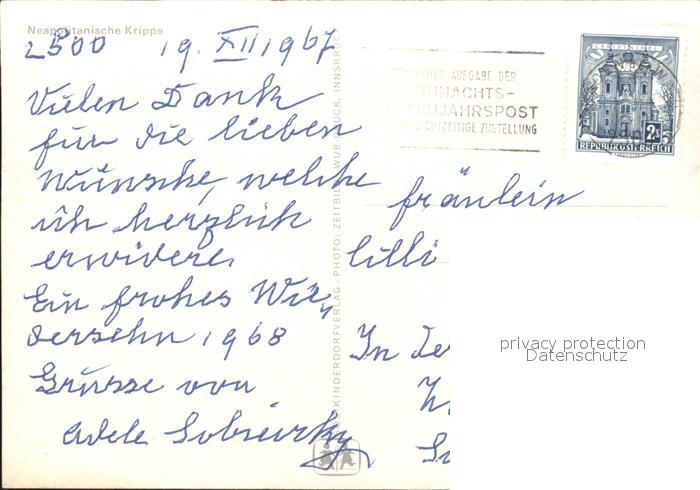 Neapolitanische Krippe
2500 19. XII 1967
Vielen Dank
für die lieben
Wünsche, welche
ich herzlich
erwidere.
Ein frohes Wie-
dersehn 1968
Grüsse von
Adele
Fräulein
Lilli
In de
KINDERDORFVERLAG - PHOTO: ZEITBILD, WUB-DRUCK, INNSBRUCK
AUFGABE DER
HNACHTS-
JAHRSPOST
ZEITIGE ZUSTELLUNG
CHRISTKINDL
2S
REPUBLIK ÖSTERREICH
privacy protection
Datenschutz